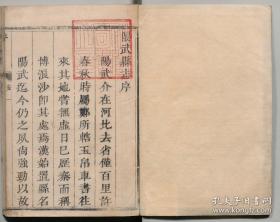 陽武縣志序
陽武介在河北去省僅百里許
春秋時屬鄭所轄玉帛車書往
來其地嘗無虛日已歷秦而稱
博浪沙即其處爲漢始置縣名
陽武迄今仍之夙尚強勁以故